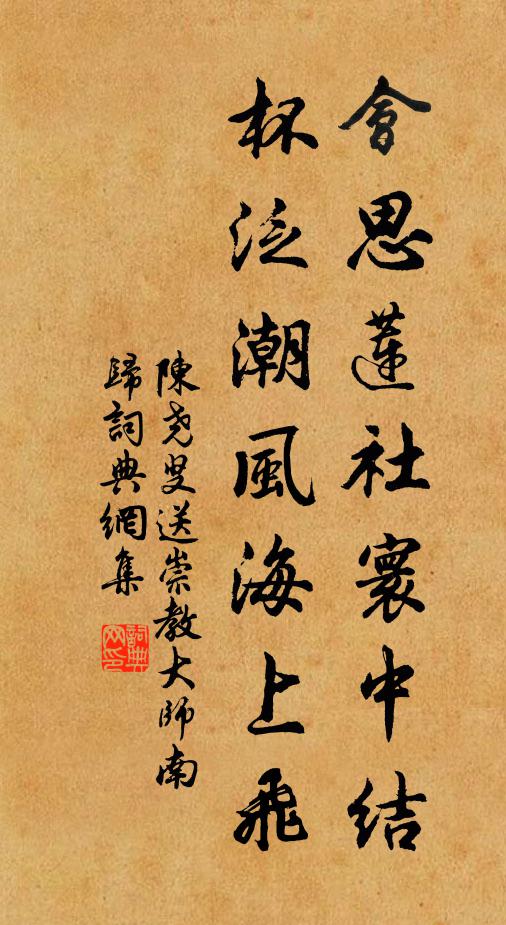 會思蓮社寰中結
杯泛潮風海上飛
陳尧叟送崇教大師南
歸詞典網集
詞典
网印